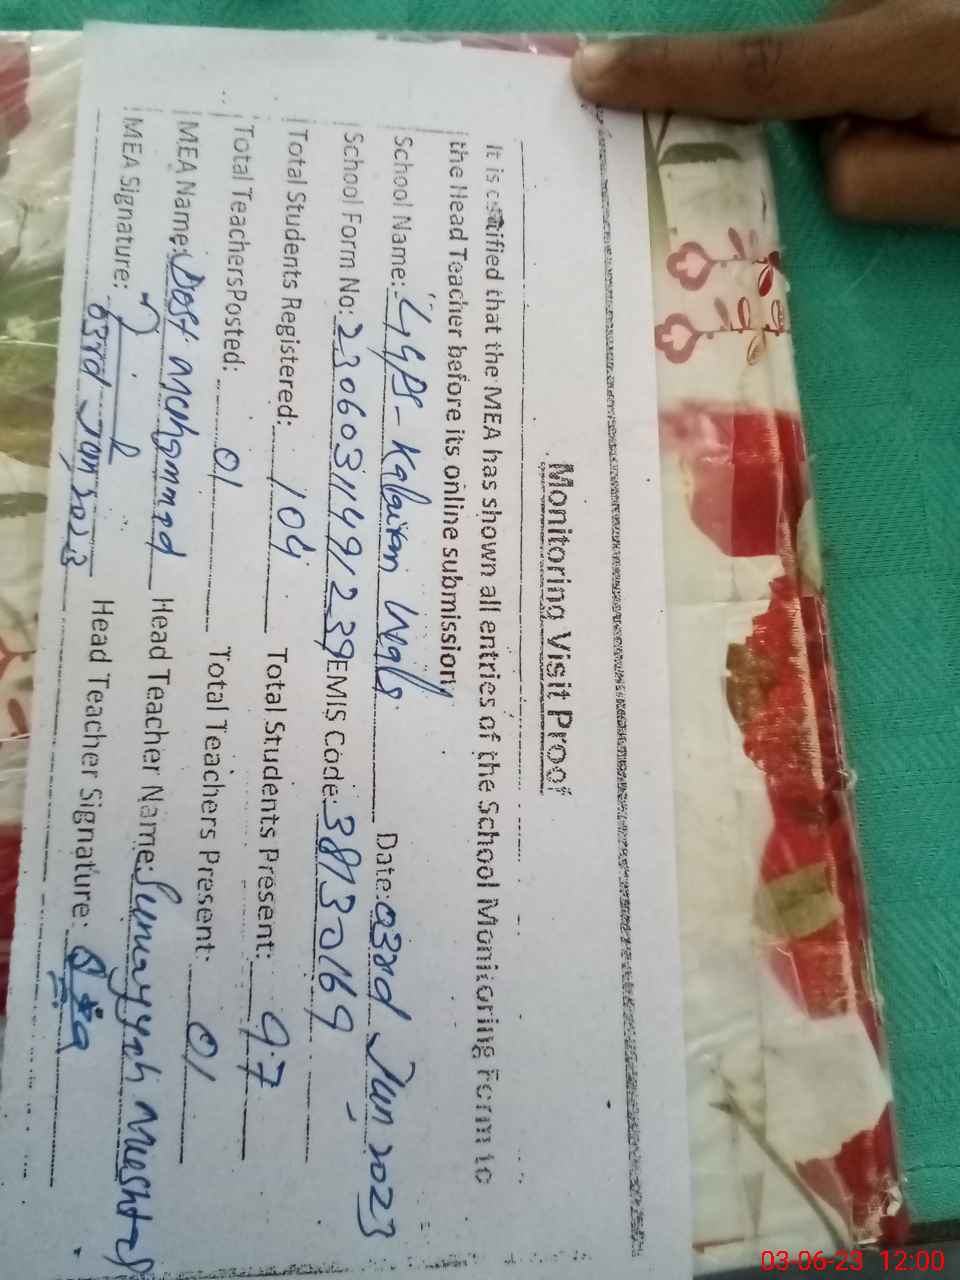 Monitoring Visit Proof
It is certified that the MEA has shown all entries of the School Monitoring Form to
the Head Teacher before its online submission
School Name: GGPS- Kalairan Wali. Date: 03rd Jun, 2023
School Form No: 23060311491239 EMIS Code: 38130169
Total Students Registered: 104 Total Students Present: 97
Total TeachersPosted: 01 Total Teachers Present: 01
MEA Name: Dost Mohammad Head Teacher Name: Sumayyah Mushtaq
MEA Signature: Head Teacher Signature:
03rd Jun, 2023
03-06-23 12:00